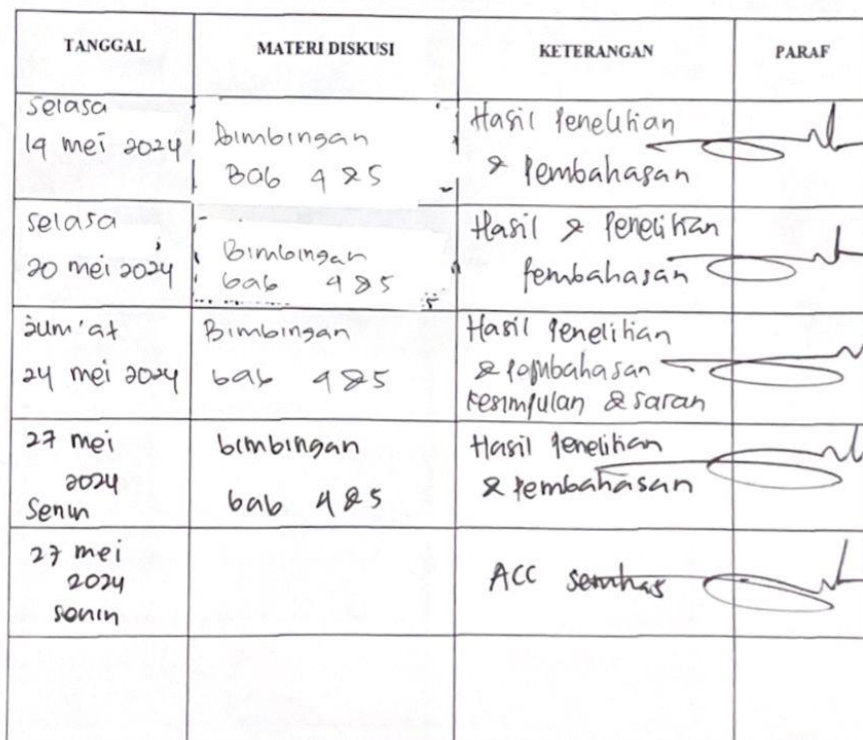 TANGGAL MATERI DISKUSI KETERANGAN PARAF
Selasa
14 mei 2024
Bimbingan
Bab 4 & 5
Hasil Penelitian
& Pembahasan
Selasa
20 mei 2024
Bimbingan
bab 4 & 5
Hasil & Penelitian
Pembahasan
Jum'at
24 mei 2024
Bimbingan
bab 4 & 5
Hasil Penelitian
& Pembahasan
Kesimpulan & saran
27 mei
2024
Senin
bimbingan
bab 4 & 5
Hasil Penelitian
& Pembahasan
27 mei
2024
Senin
ACC semhas